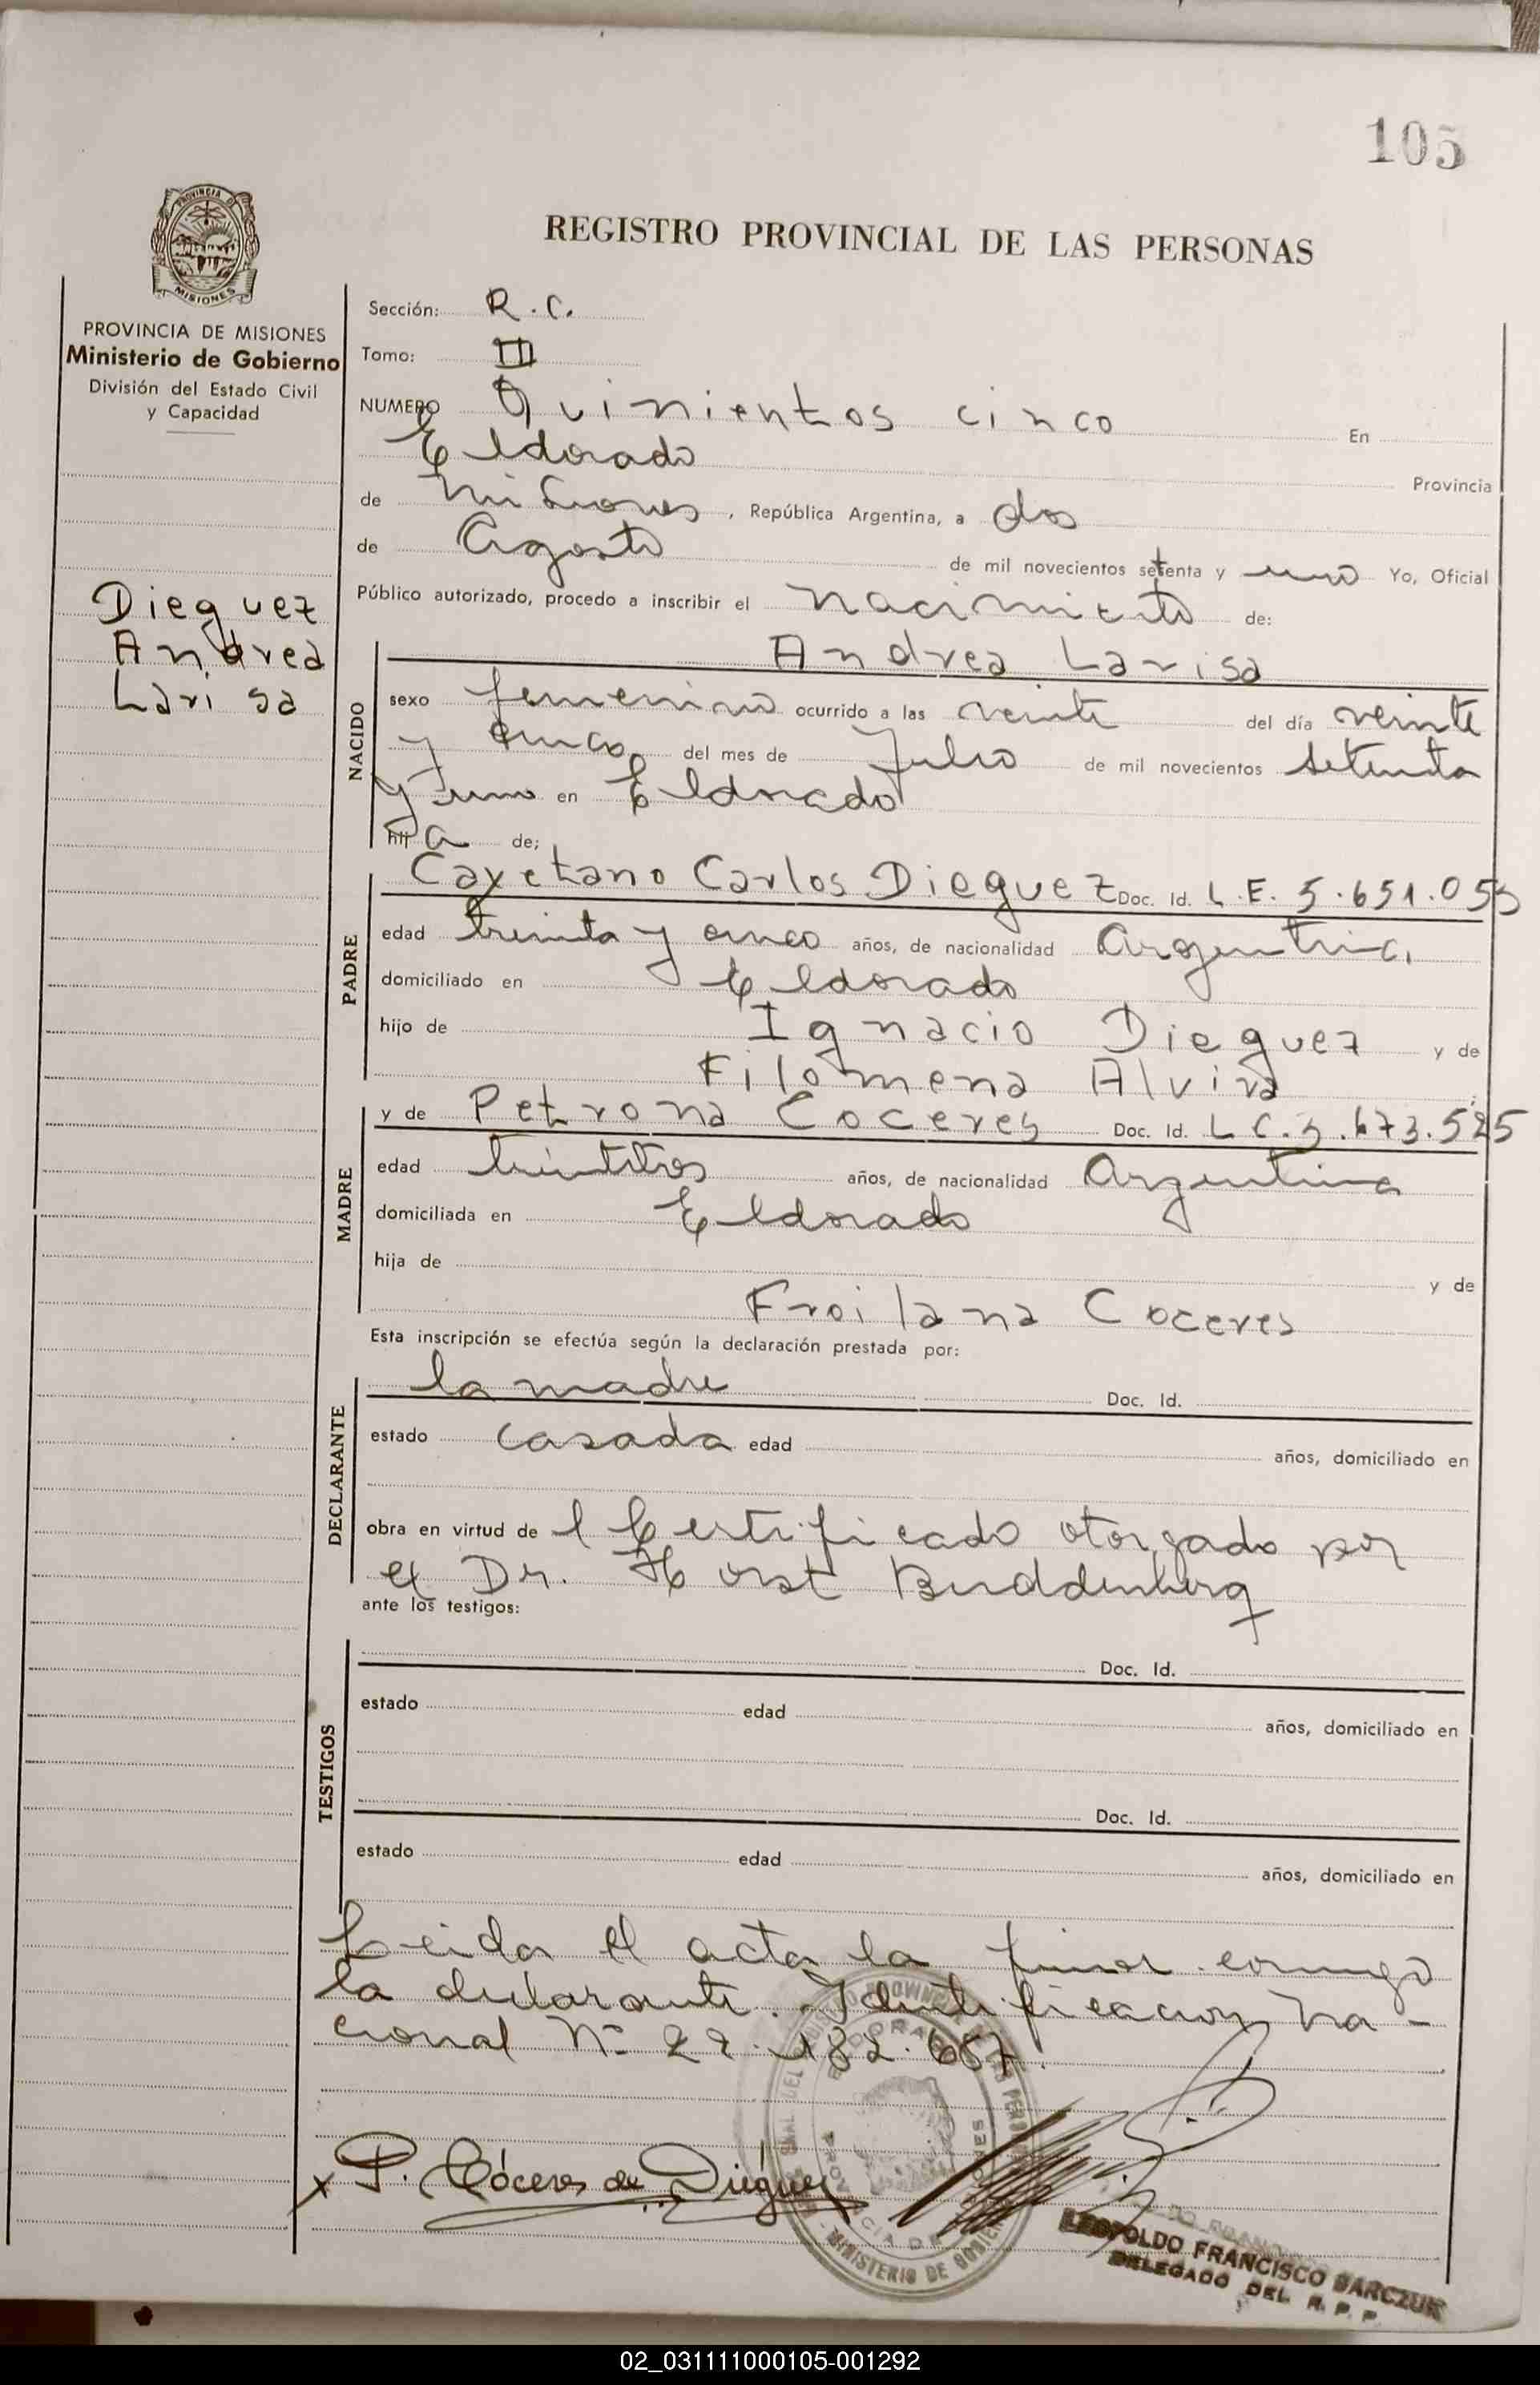 105
REGISTRO PROVINCIAL DE LAS PERSONAS
PROVINCIA DE MISIONES
Ministerio de Gobierno
División del Estado Civil
y Capacidad
Dieguez
Andrea
Larisa
Sección: R.C.
Tomo: III
NUMERO Quinientos cinco En
Eldorado Provincia
de Misiones, República Argentina, a dos
de Agosto de mil novecientos setenta y uno Yo, Oficial
Público autorizado, procedo a inscribir el nacimiento de:
NACIDO
Andrea Larisa
sexo femenino ocurrido a las veinte del día veinte
y cinco del mes de Julio de mil novecientos setenta
y uno en Eldorado
hij a de;
PADRE
Cayetano Carlos Dieguez Doc. Id. L.E. 5.651.055
edad treinta y cinco años, de nacionalidad Argentina
domiciliado en Eldorado
hijo de Ignacio Dieguez y de
Filomena Alvira
MADRE
y de Petrona Coceres Doc. Id. L C. 3.673.525
edad treintitres años, de nacionalidad Argentina
domiciliada en Eldorado
hija de y de
Froilana Coceres
Esta inscripción se efectúa según la declaración prestada por:
DECLARANTE
la madre Doc. Id.
estado casada edad años, domiciliado en
obra en virtud de l Certificado otorgado por
el Dr. Horst Buddenberg
ante los testigos:
TESTIGOS
Doc. Id.
estado edad años, domiciliado en
Doc. Id.
estado edad años, domiciliado en
Leida el acta la firma conmigo
la declarante. Identificacion na-
cional Nº 22.182.657.
P. Cóceres de Diéguez
LEOPOLDO FRANCISCO BARCZUK
DELEGADO DEL R. P. P.
02_031111000105-001292